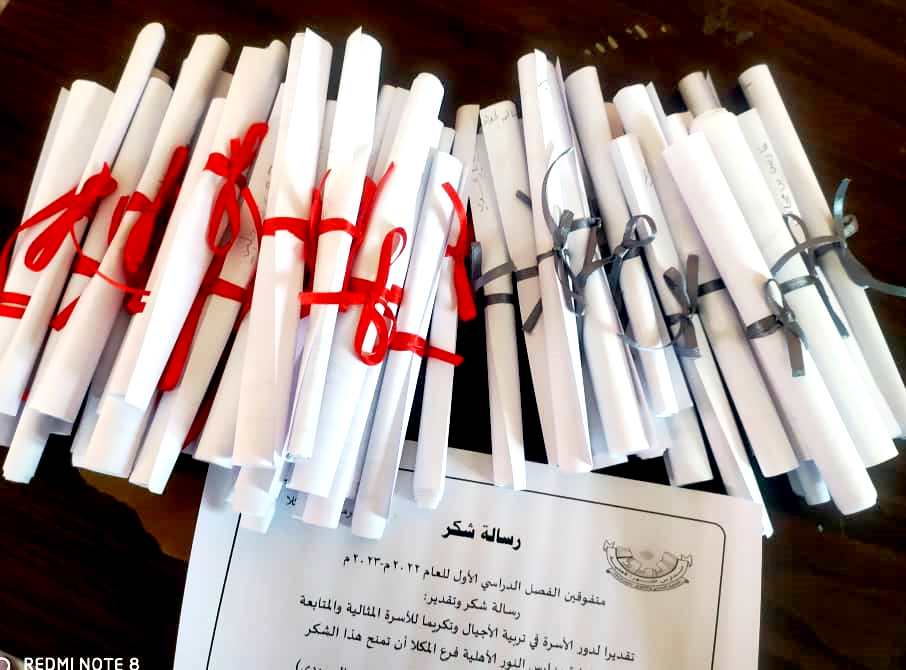 رسالة شكر
متفوقين الفصل الدراسي الأول للعام ٢٠٢٢م-٢٠٢٣م
رسالة شكر وتقدير:
تقديرا لدور الأسرة في تربية الأجيال وتكريما للأسرة المثالية والمتابعة
مدارس النور الأهلية فرع المكلا أن تمنح هذا الشكر
REDMI NOTE 8